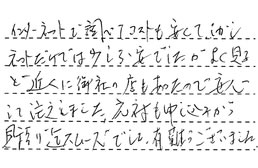 インターネットで調べてコストも安くて、しかし
ネットだけでは少し不安でしたがよく見る
と近くに御社の店もあったので安心
して注文しました。元村も申し込みから
見積り迄スムーズでした。有難うございました